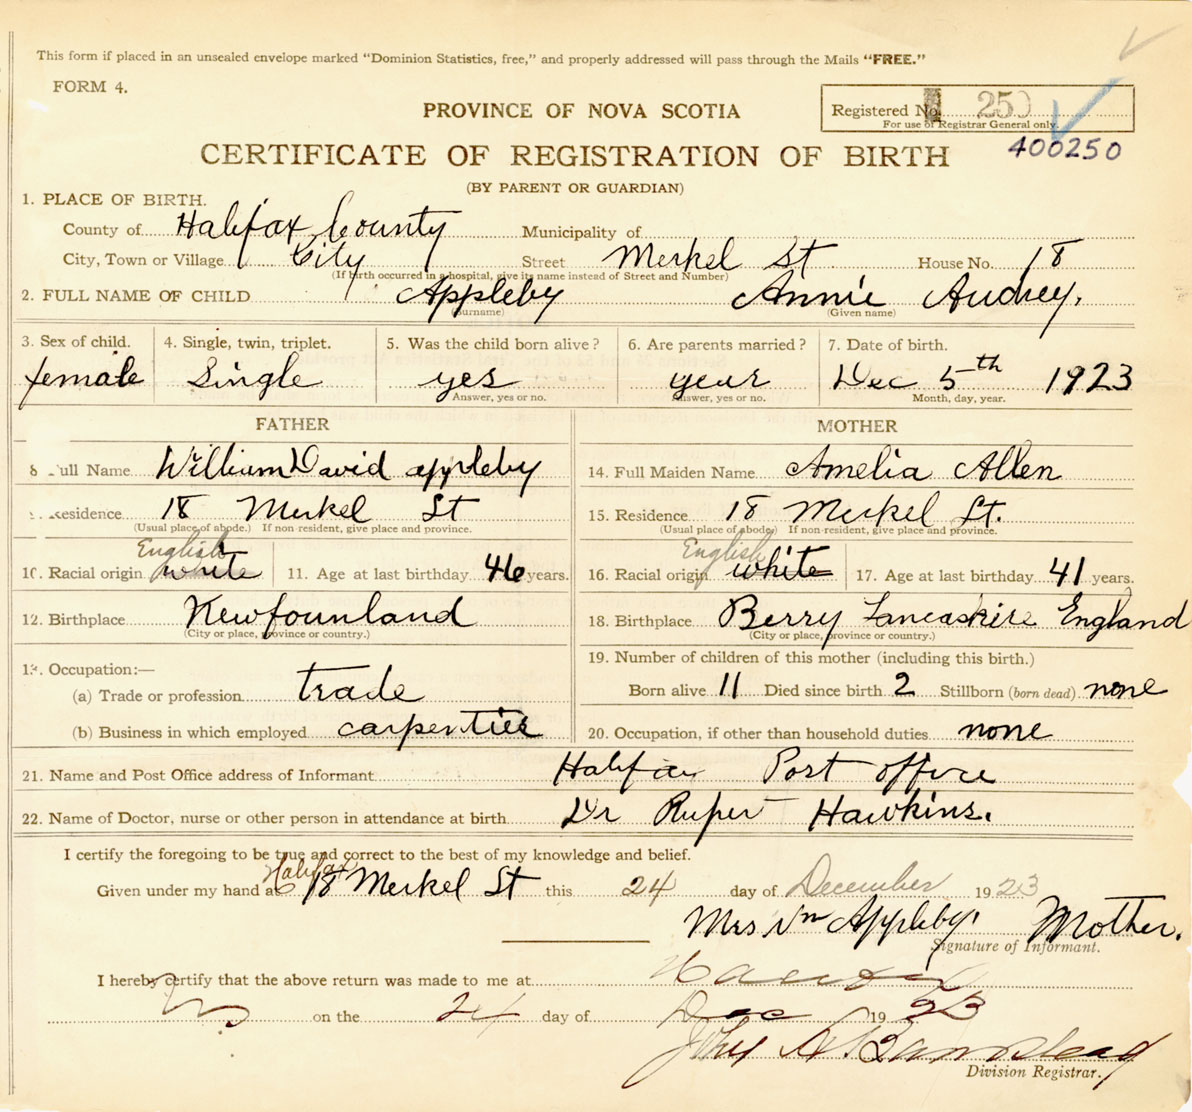 This form if placed in an unsealed envelope marked “Dominion Statistics, free,” and properly addressed will pass through the Mails “FREE.”
FORM 4.
PROVINCE OF NOVA SCOTIA
Registered No. 250
For use of Registrar General only.
CERTIFICATE OF REGISTRATION OF BIRTH
400250
(BY PARENT OR GUARDIAN)
1. PLACE OF BIRTH.
County of Halifax County Municipality of
City, Town or Village City Street Merkel St House No. 18
(If birth occurred in a hospital, give its name instead of Street and Number)
2. FULL NAME OF CHILD Appleby Annie Audrey.
(Surname) (Given name)
3. Sex of child. 4. Single, twin, triplet. 5. Was the child born alive? 6. Are parents married? 7. Date of birth.
female Single yes year Dec 5th 1923
Answer, yes or no. Answer, yes or no. Month, day, year.
FATHER MOTHER
8 Full Name William David appleby 14. Full Maiden Name Amelia Allen
Residence 18 Merkel St 15. Residence 18 Merkel St.
(Usual place of abode.) If non-resident, give place and province. (Usual place of abode.) If non-resident, give place and province.
English English
10. Racial origin white 11. Age at last birthday 46 years. 16. Racial origin white 17. Age at last birthday 41 years.
12. Birthplace Newfounland 18. Birthplace Berry Lancashire England
(City or place, province or country.) (City or place, province or country.)
13. Occupation:— 19. Number of children of this mother (including this birth.)
(a) Trade or profession trade Born alive 11 Died since birth 2 Stillborn (born dead) none
(b) Business in which employed carpentier 20. Occupation, if other than household duties none
21. Name and Post Office address of Informant Halifax Post office
22. Name of Doctor, nurse or other person in attendance at birth Dr Ruper Hawkins.
I certify the foregoing to be true and correct to the best of my knowledge and belief.
Halifax
Given under my hand at 18 Merkel St this 24 day of December 1923
Mrs Wm Appleby. Mother.
Signature of Informant.
I hereby certify that the above return was made to me at
on the 24 day of Dec 1923
Division Registrar.